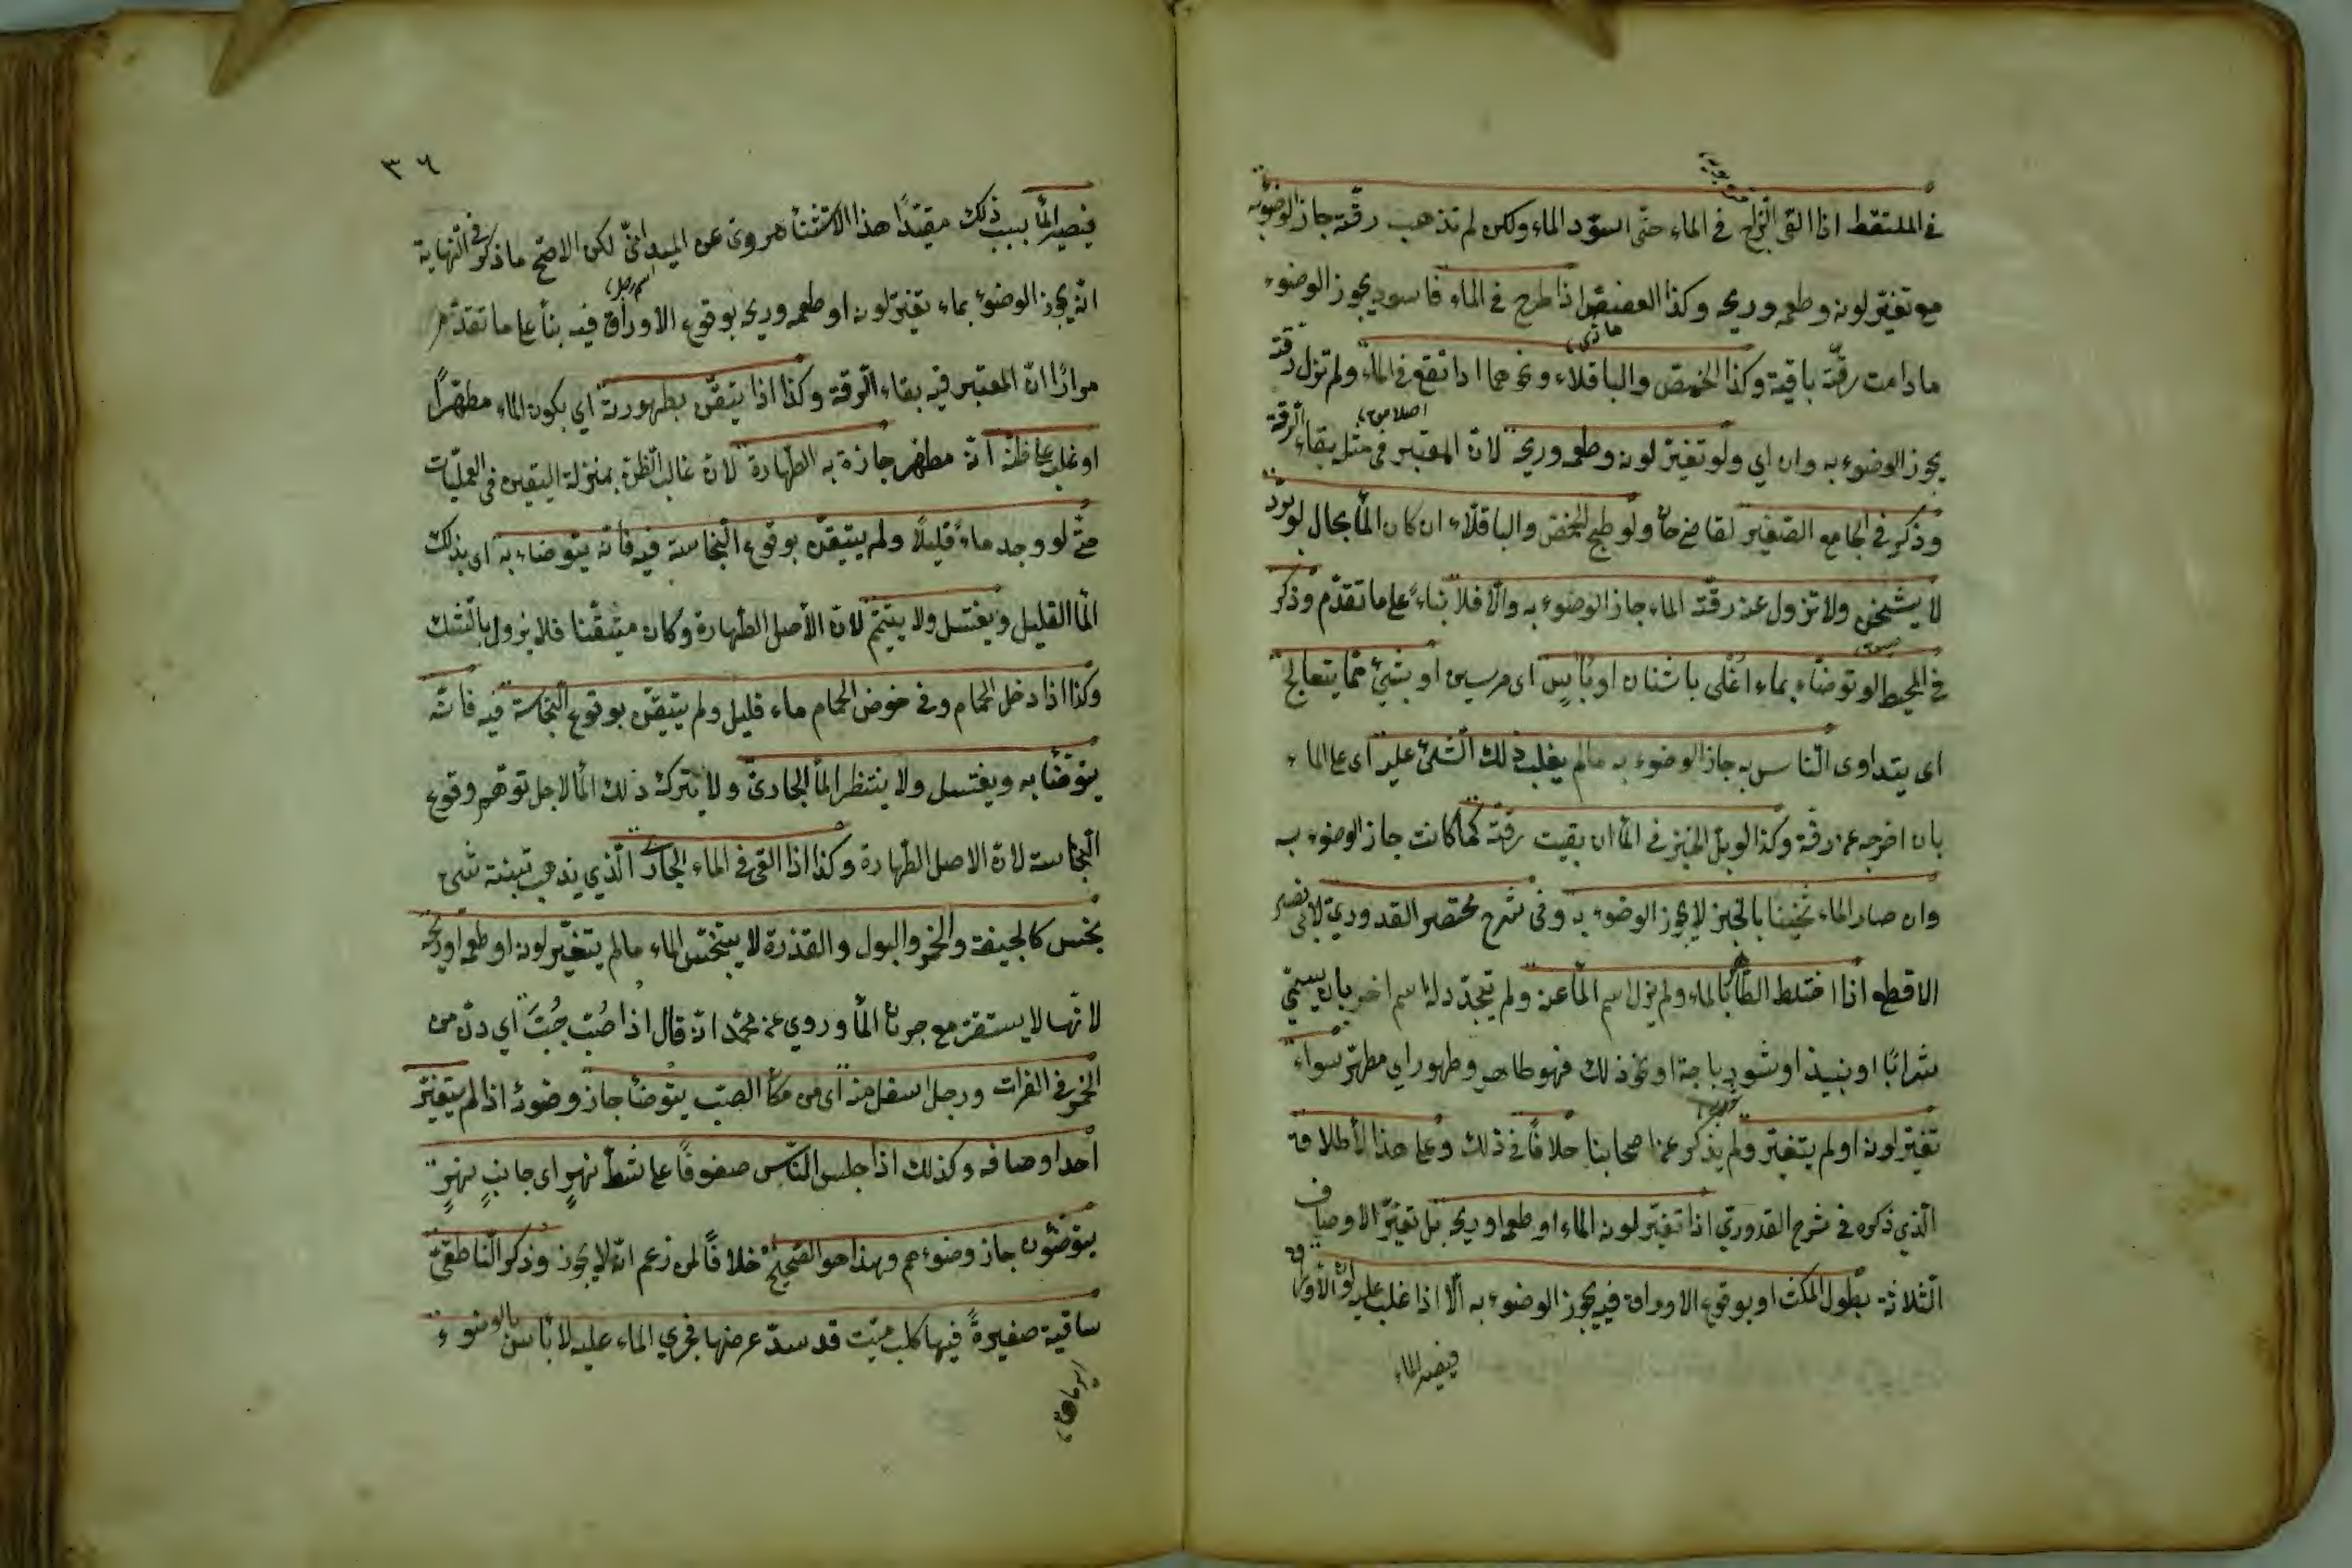 في الملتقط اذا القى الزاج في الماء حتى اسوّد الماء ولكن لم تذهب رقّته جاز الوضوء به
مع تغيّر لونه وطعمه وريحه وكذا العفص اذا طرح في الماء فاسود يجوز الوضوء
مادامت رقّته باقية وكذا الحمّص والباقلاء ونحوهما اذا نقع في الماء ولم تزل رقته
يجوز الوضوء به وان اي ولو تغيّر لونه وطعمه وريحه لانّ المعتبر في مثل بقاء الرقة
وذكر في الجامع الصّغير لقاضي خان ولو طبخ الحمّص والباقلّاء ان كان الماء بحال لو برّد
لا يثخن ولا تزول عنه رقّة الماء جاز الوضوء به والّا فلا بناءً على ما تقدّم وذكر
في المحيط لو توضّاء بماء اُغلى باشنان او بآسٍ اى مرسين او بشئ ممّا يتعالج
اى يتداوى النّاس به جاز الوضوء به مالم يغلب ذلك الشّئ عليه اى على الماء
بان اخرجه عن رقّته وكذا لو بلّ الخبز في الماء ان بقيت رقّته كما كانت جاز الوضوء به
وان صار الماء ثخينا بالخبز لا يجوز الوضوء به وفى شرح مختصر القدوريّ لابى نصر
الاقطع اذا اختلط الطّاهر بالماء ولم يزل اسم الماء عنه ولم يتجدّد له اسم اخر بان يسمّى
شرابًا او نبيذ او شورباجة او نحو ذلك فهو طاهر وطهور اي مطهّر سواء
تغيّر لونه او لم يتغيّر ولم يذكر عن اصحابنا خلافًا في ذلك وعلى هذا الأطلاق
الّذي ذكره في شرح القدوريّ اذا تغيّر لون الماء او طعمه او ريحه بل تغيّر الاوصاف
الثلاثة بطول المكث او بوقوع الاوراق فيه يجوز الوضوء به الّا اذا غلب عليه لون الأوراق
فيصير الماء
٣٦
فيصير الماء بسبب ذلك مقيّدًا هذا الاستثناء مروىّ عن الميدانىّ لكن الاصّح ما ذكر في النّهاية
انّه يجوز الوضوء بماء تغيّر لونه او طعمه وريحه بوقوع الاوراق فيه بناء على ما تقدّم
مرارًا انّ المعتبر فيه بقاء الرّقة وكذا اذا تيقّن بطهوريته اي بكون الماء مطهّرًا
او غلب على ظنّه انّه مطهّر جازت به الطّهارة لانّ غالب الظنّ بمنزلة اليقين في العمليّات
حتّى لو وجد ماءً قليلًا ولم يتيقّن بوقوع النّجاسة فيه فانّه يتوضاء به اى بذلك
الماء القليل ويغتسل ولا يتيمّم لانّ الأصل الطّهارة وكان متيقّنا فلا يزول بالشّك
وكذا اذا دخل الحمام وفى حوض الحمام ماء قليل ولم يتيقّن بوقوع النّجاسة فيه فانّه
يتوضّأ به ويغتسل ولا ينتظر الماء الجارى ولا يترك ذلك الماء لاجل توهّم وقوع
النّجاسة لانّ الاصل الطّهارة وكذا اذا القى في الماء الجارى الّذي يذهب بتبنة شئ
نجس كالجيفة والخمر والبول والقذرة لا يتنجّس الماء مالم يتغيّر لونه او طعمه او ريحه
لانّها لا يستقرّ مع جريان الماء وروي عن محمّد انّه قال اذا صُبّ حُبّ اي دنّ من
الخمر في الفرات ورجل اسفل منه اى من مكان الصبّ يتوضّأ جاز وضوئه اذا لم يتغيّر
احد اوصافه وكذلك اذا جلس النّاس صفوفًا على شطّ نهرٍ اى جانبٍ نهرٍ
يتوضّئون جاز وضوءهم وهذا هو الصّحيح خلافًا لمن زعم انّه لا يجوز وذكر النّاطفىّ
ساقية صغيرةً فيها كلب ميّت قد سدّ عرضها فجري الماء عليه لا باس بالوضوء